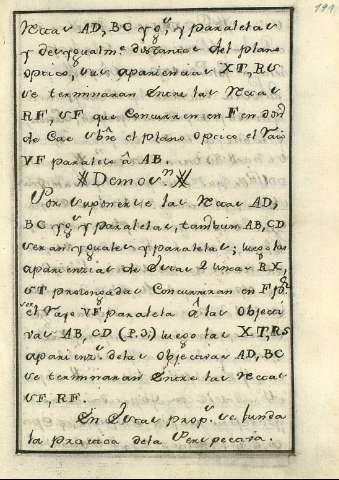 191
rectas AD, BC yg.s, y paralelas
y desygualm.e distantes del plano
optico, sus apariencias XT, RS
se terminaran entre las rectas
RF, SF que concurren en F en don
de cae sobre el plano optico el rayo
VF paralelo â AB.
Demos.n
Por suponerse las rectas AD,
BC yg.s y paralelas, tambien AB, CD
seran yguales y paralelas; luego las
apariencias de estas 2 lineas RX,
ST prolongadas concurriran en F p.r
el rayo VF paralela â las objecti
vas AB, CD (P.3.) luego las XT, RS
aparienz.s delas objectivas AD, BC
se terminaran entre las rectas
SF, RF.
En estas prop.s se funda
la practica dela perspectiva.